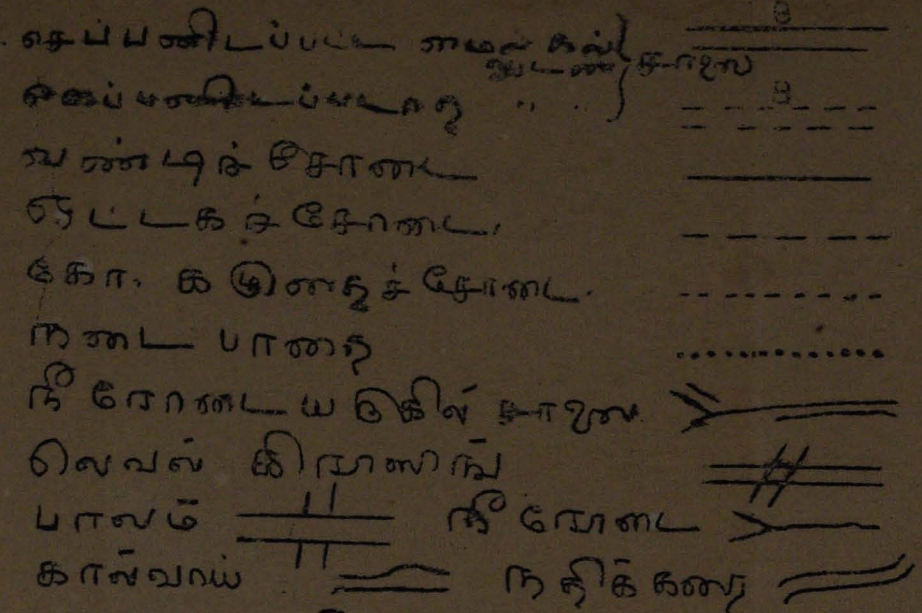 செப்பனிடப்பட்ட மைல் கல் 8
னுடன் சாலை
செப்பனிடப்படாத " " 8
வண்டிச் சோடை
ஒட்டகச் சோடை.
கோ. கழுதைச் சோடை.
நடை பாதை
நீரோடைய ருகில் சாலை
லெவல் கிராஸிங்
பாலம் நீரோடை
கால்வாய் நதிக்கரை